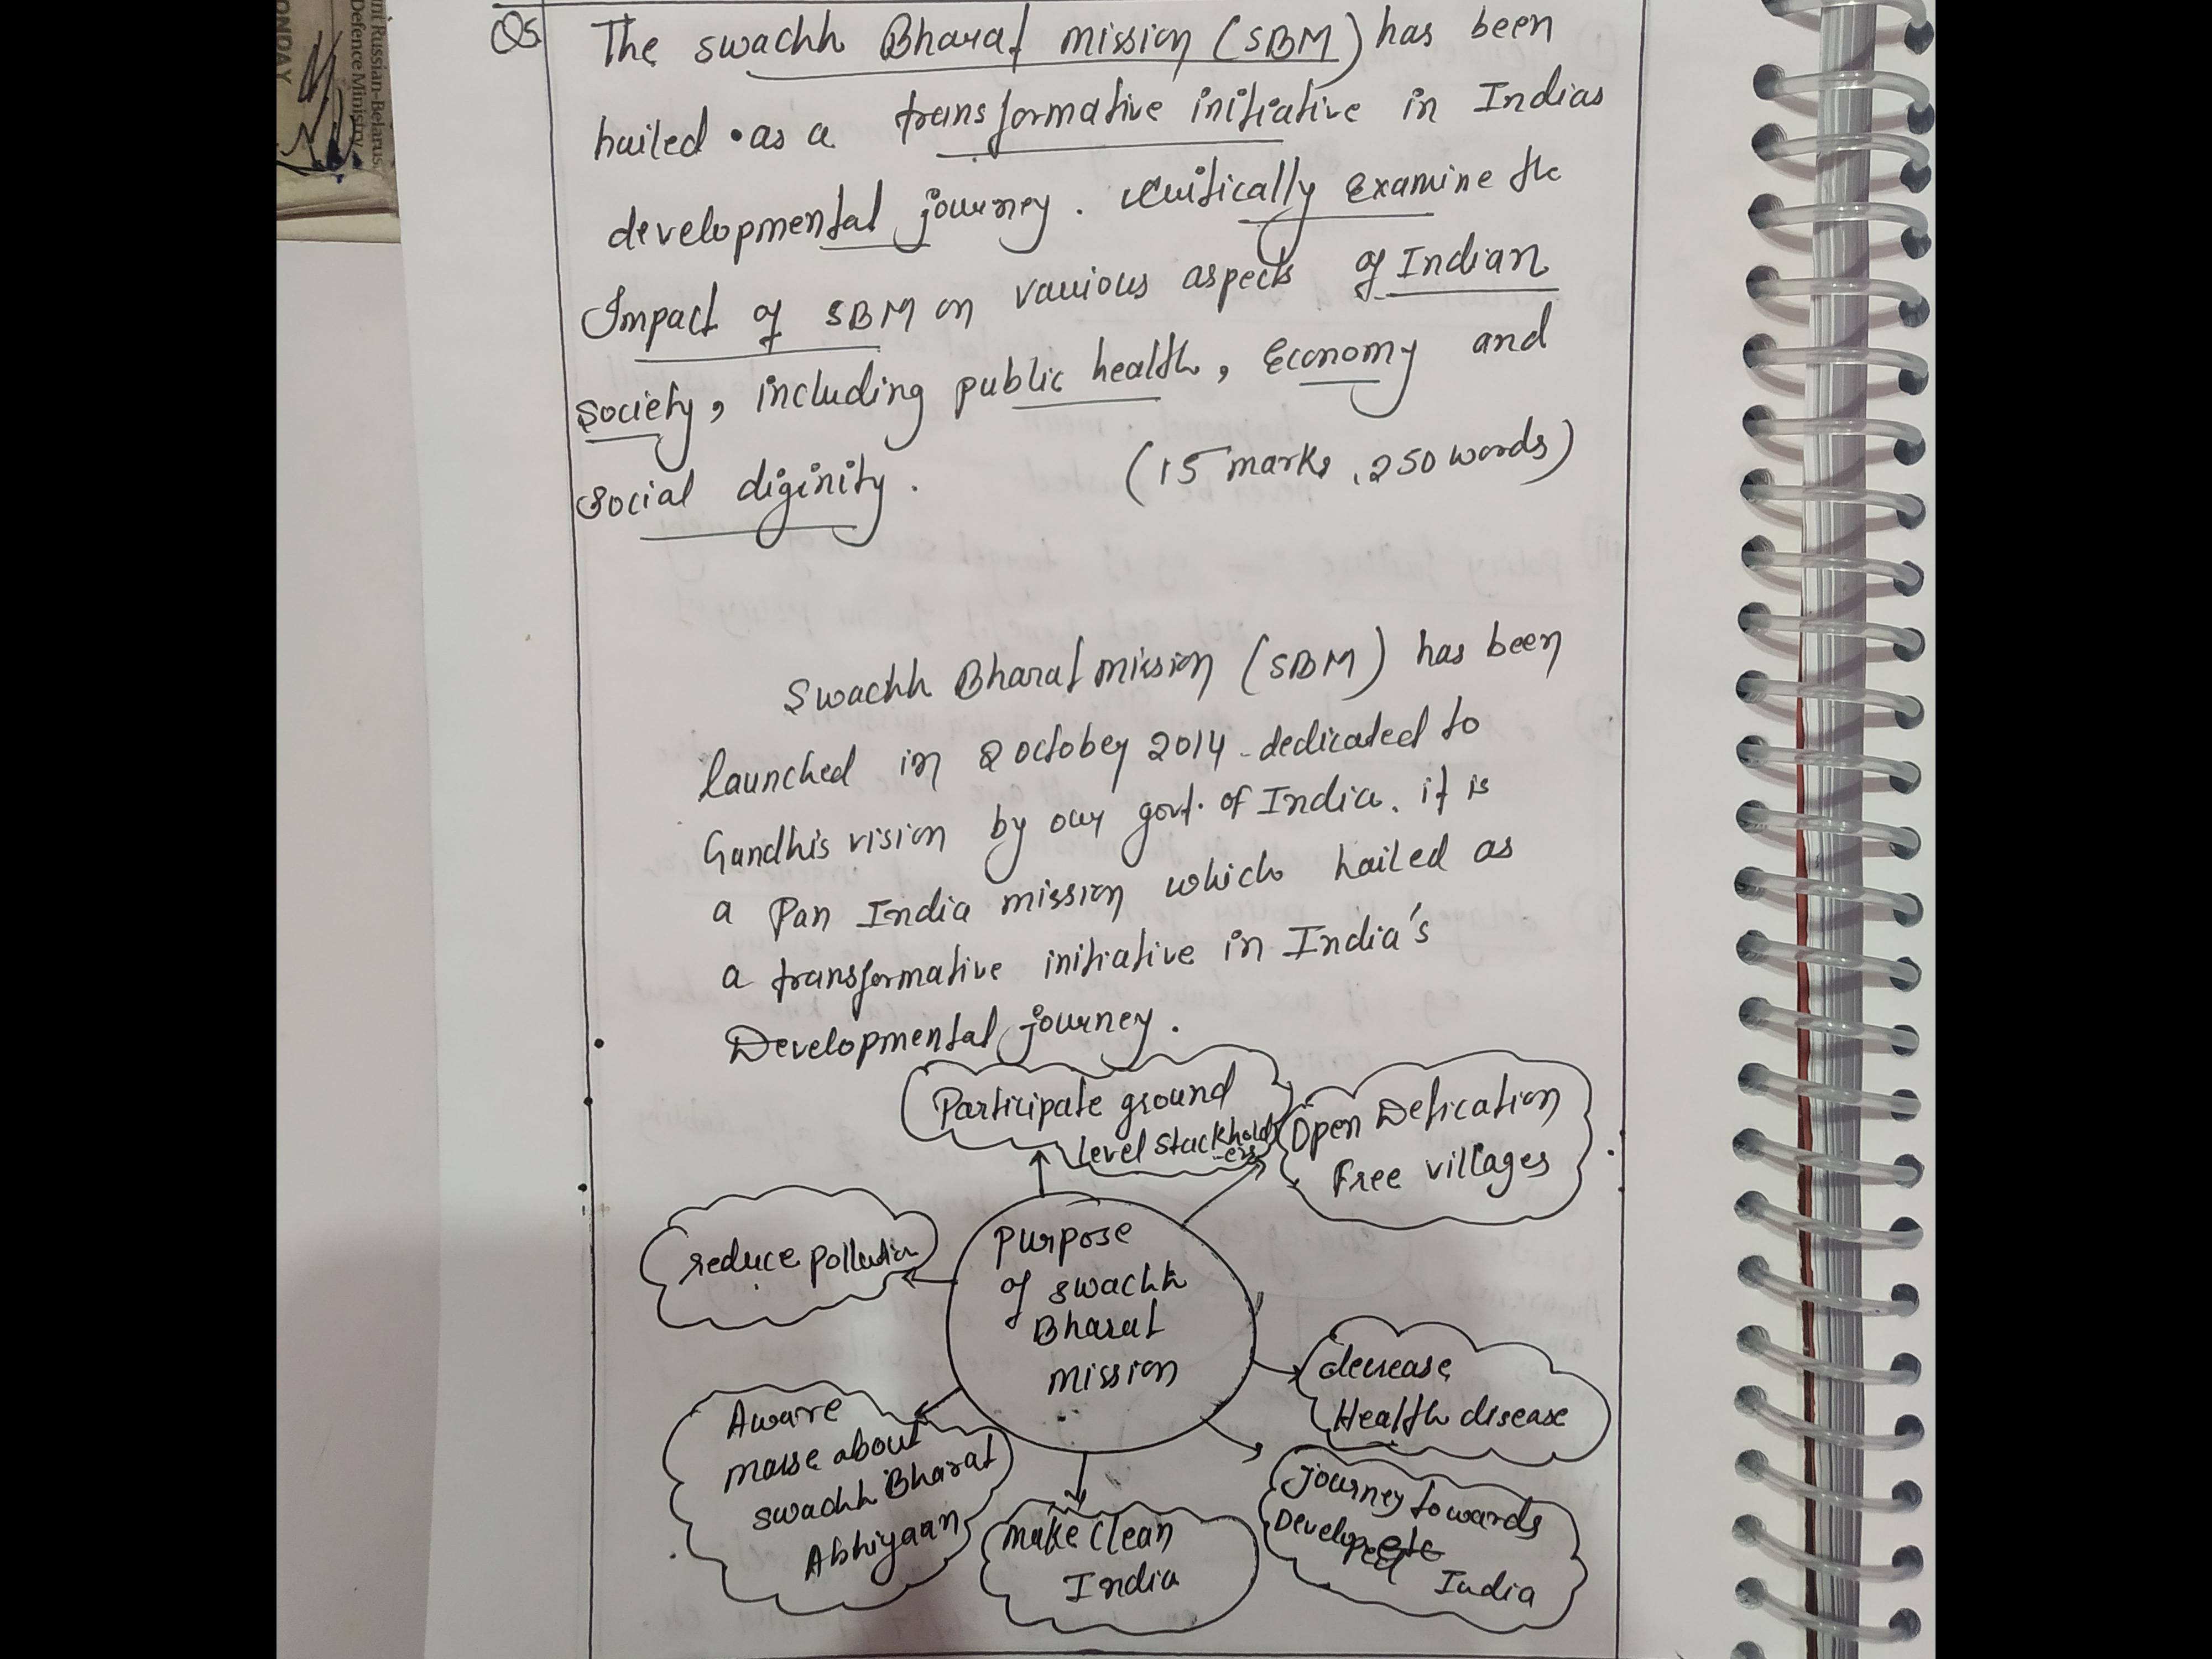 nt Russian-Belarus
Defence Ministry
ONDAY
Q5
The swachh Bharat mission (SBM) has been
hailed as a transformative initiative in Indias
developmental journey. critically examine the
Impact of SBM on various aspects of Indian
society, including public health, Economy and
social diginity. (15 marks, 250 words)
Swachh Bharat mission (SBM) has been
launched in 2 october 2014 dedicated to
Gandhi's vision by our govt. of India. it is
a Pan India mission which hailed as
a transformative initiative in India's
Developmental journey.
Participate ground
level stackhold
-ers
Open Defication
Free villages
reduce pollution
purpose
of swachh
Bharat
mission
decrease
Health disease
Aware
masse about
swachh Bharat
Abhiyaan
make clean
India
journey towards
Developed
India